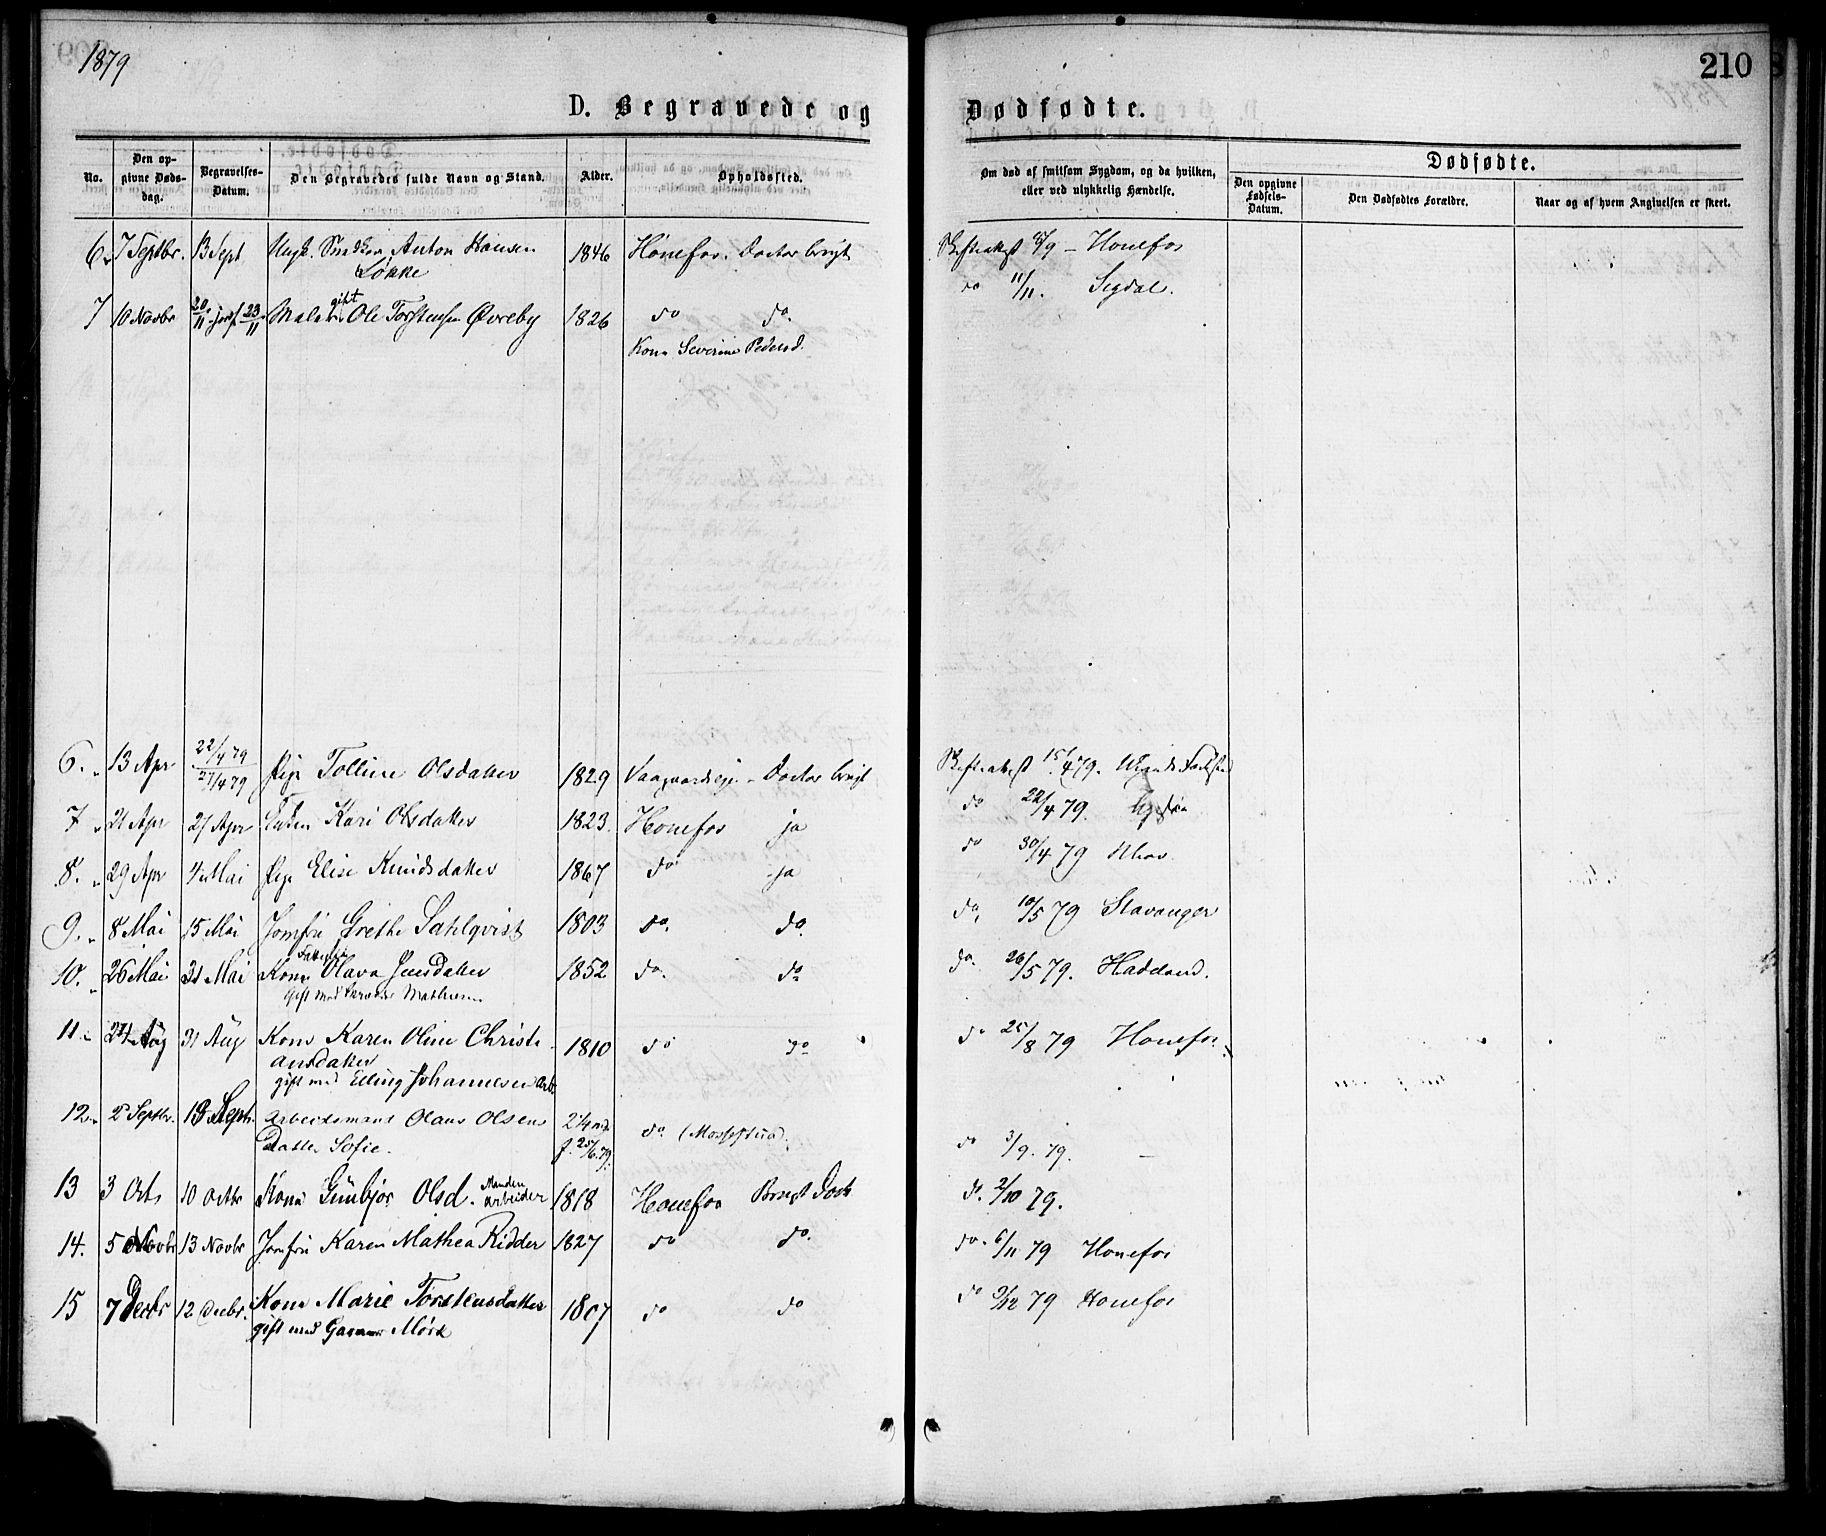 1879
210
D. Begravede og Dødfødte.
No.
Den opgivne Døds-dag.
Begravelses-Datum.
Den Begravedes fulde Navn og Stand.
Alder.
Opholdssted.
Om død af smitsom Sygdom, og da hvilken, eller ved ulykkelig Hændelse.
Dødfødte.
Den opgivne Fødsels-Datum.
Den Dødfødtes Forældre.
Naar og af hvem Angivelsen er skeet.
6. 7 Septbr. 13 Sept Ungk. Anton Hansen 1846 Hønefos. Doctor brugt Skifteatest 8/9 - Hønefos
Løkke
do 11/11. Sigdal.
7 10 Novbr 20/11 jordf 23/11 Maler gift Ole Torstensen Øvreby 1826 do do.
Kone Severine Pedersd.
6. 13 Apr 22/4 79 27/4 79 Pige Olsdatter 1829 Doctor brugt Skifteatest 15/4 79.
7 21 Apr 27 Apr Enken Kari Olsdatter 1823. Hønefos ja do 22/4 79.
8. 29 Apr 4 Mai Pige Elise Knudsdatter 1867 do ja do 30/4 79
9. 8 Mai 15 Mai Jomfru Grethe Sahlqvist 1803 do. do. do, 10/5 79 Stavanger
10. 26 Mai 31 Mai Kone Olava Jensdatter 1852 do. do do. 26/5 79. Hadeland.
Gift med Mathiesen
11. 24 Aug 31 Aug Kone Karen Oline Christi- 1810 do do do 25/8 79 Hønefos
ansdatter
gift med Elling Johannesen Arb.
12. 2 Septbr. 13 Septr. Arbeidsmand Olaus Olsens 2 1/4 md do (Mossestua). do 3/9. 79.
Datter Sofie. f. 25/6 79.
13 3 Octb 10 Octbr Kone Gunbjør Olsd. Manden Arbeider 1818 Hønefos Brugt Doct. do. 2/10 79.
14. 5 Novbr 13 Novbr Jomfru Karen Mathea Ridder 1827 do do. do. 6/11 79 Hønefos
15 7 Decbr 12 Decbr. Kone Marie Torstensdatter 1807 do do do 9/12 79 Hønefos
gift med Garver Mørk